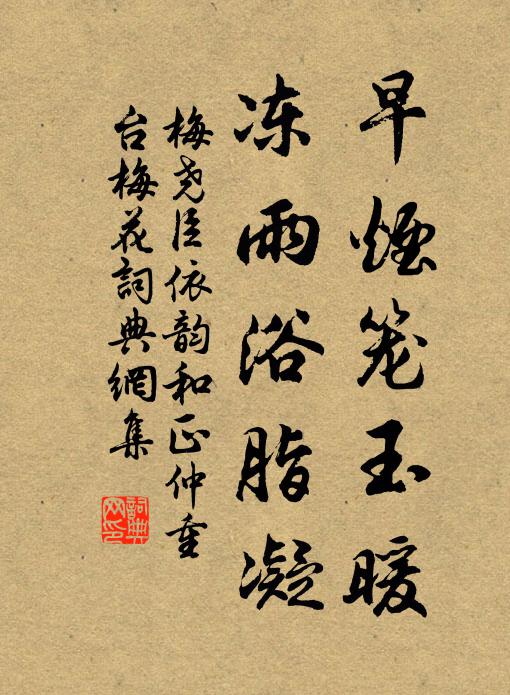 早煙笼玉暖
冻雨浴脂凝
梅尧臣依韵和正仲重
台梅花詞典網集
詞典网印